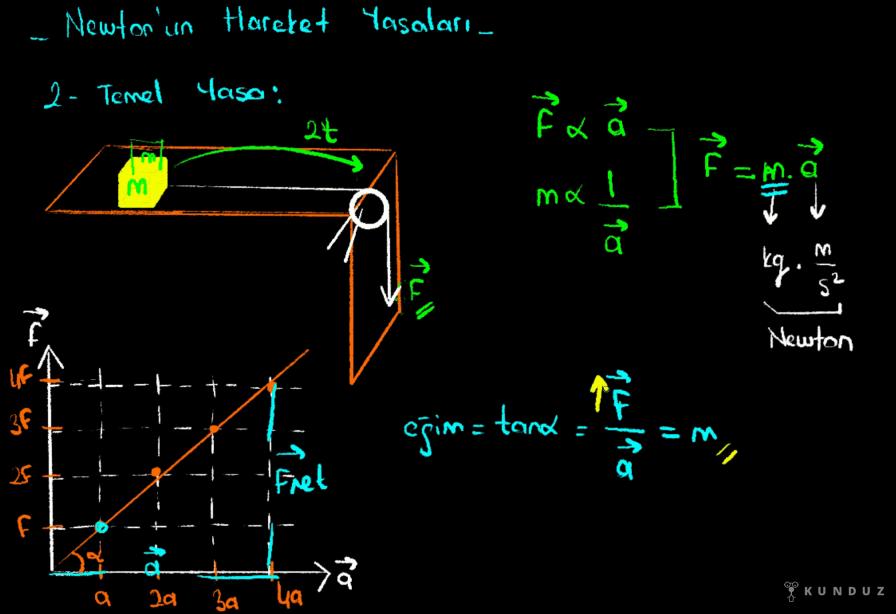 _ Newton'un Hareket Yasaları _
2- Temel Yasa:
2t
m
m
F
F ∝ a
m ∝ 1/a
F = m.a
kg . m/s²
Newton
F
4F
3F
2F
F
α
a
Fnet
a
2a
3a
4a
a
eğim = tanα = F/a = m
KUNDUZ